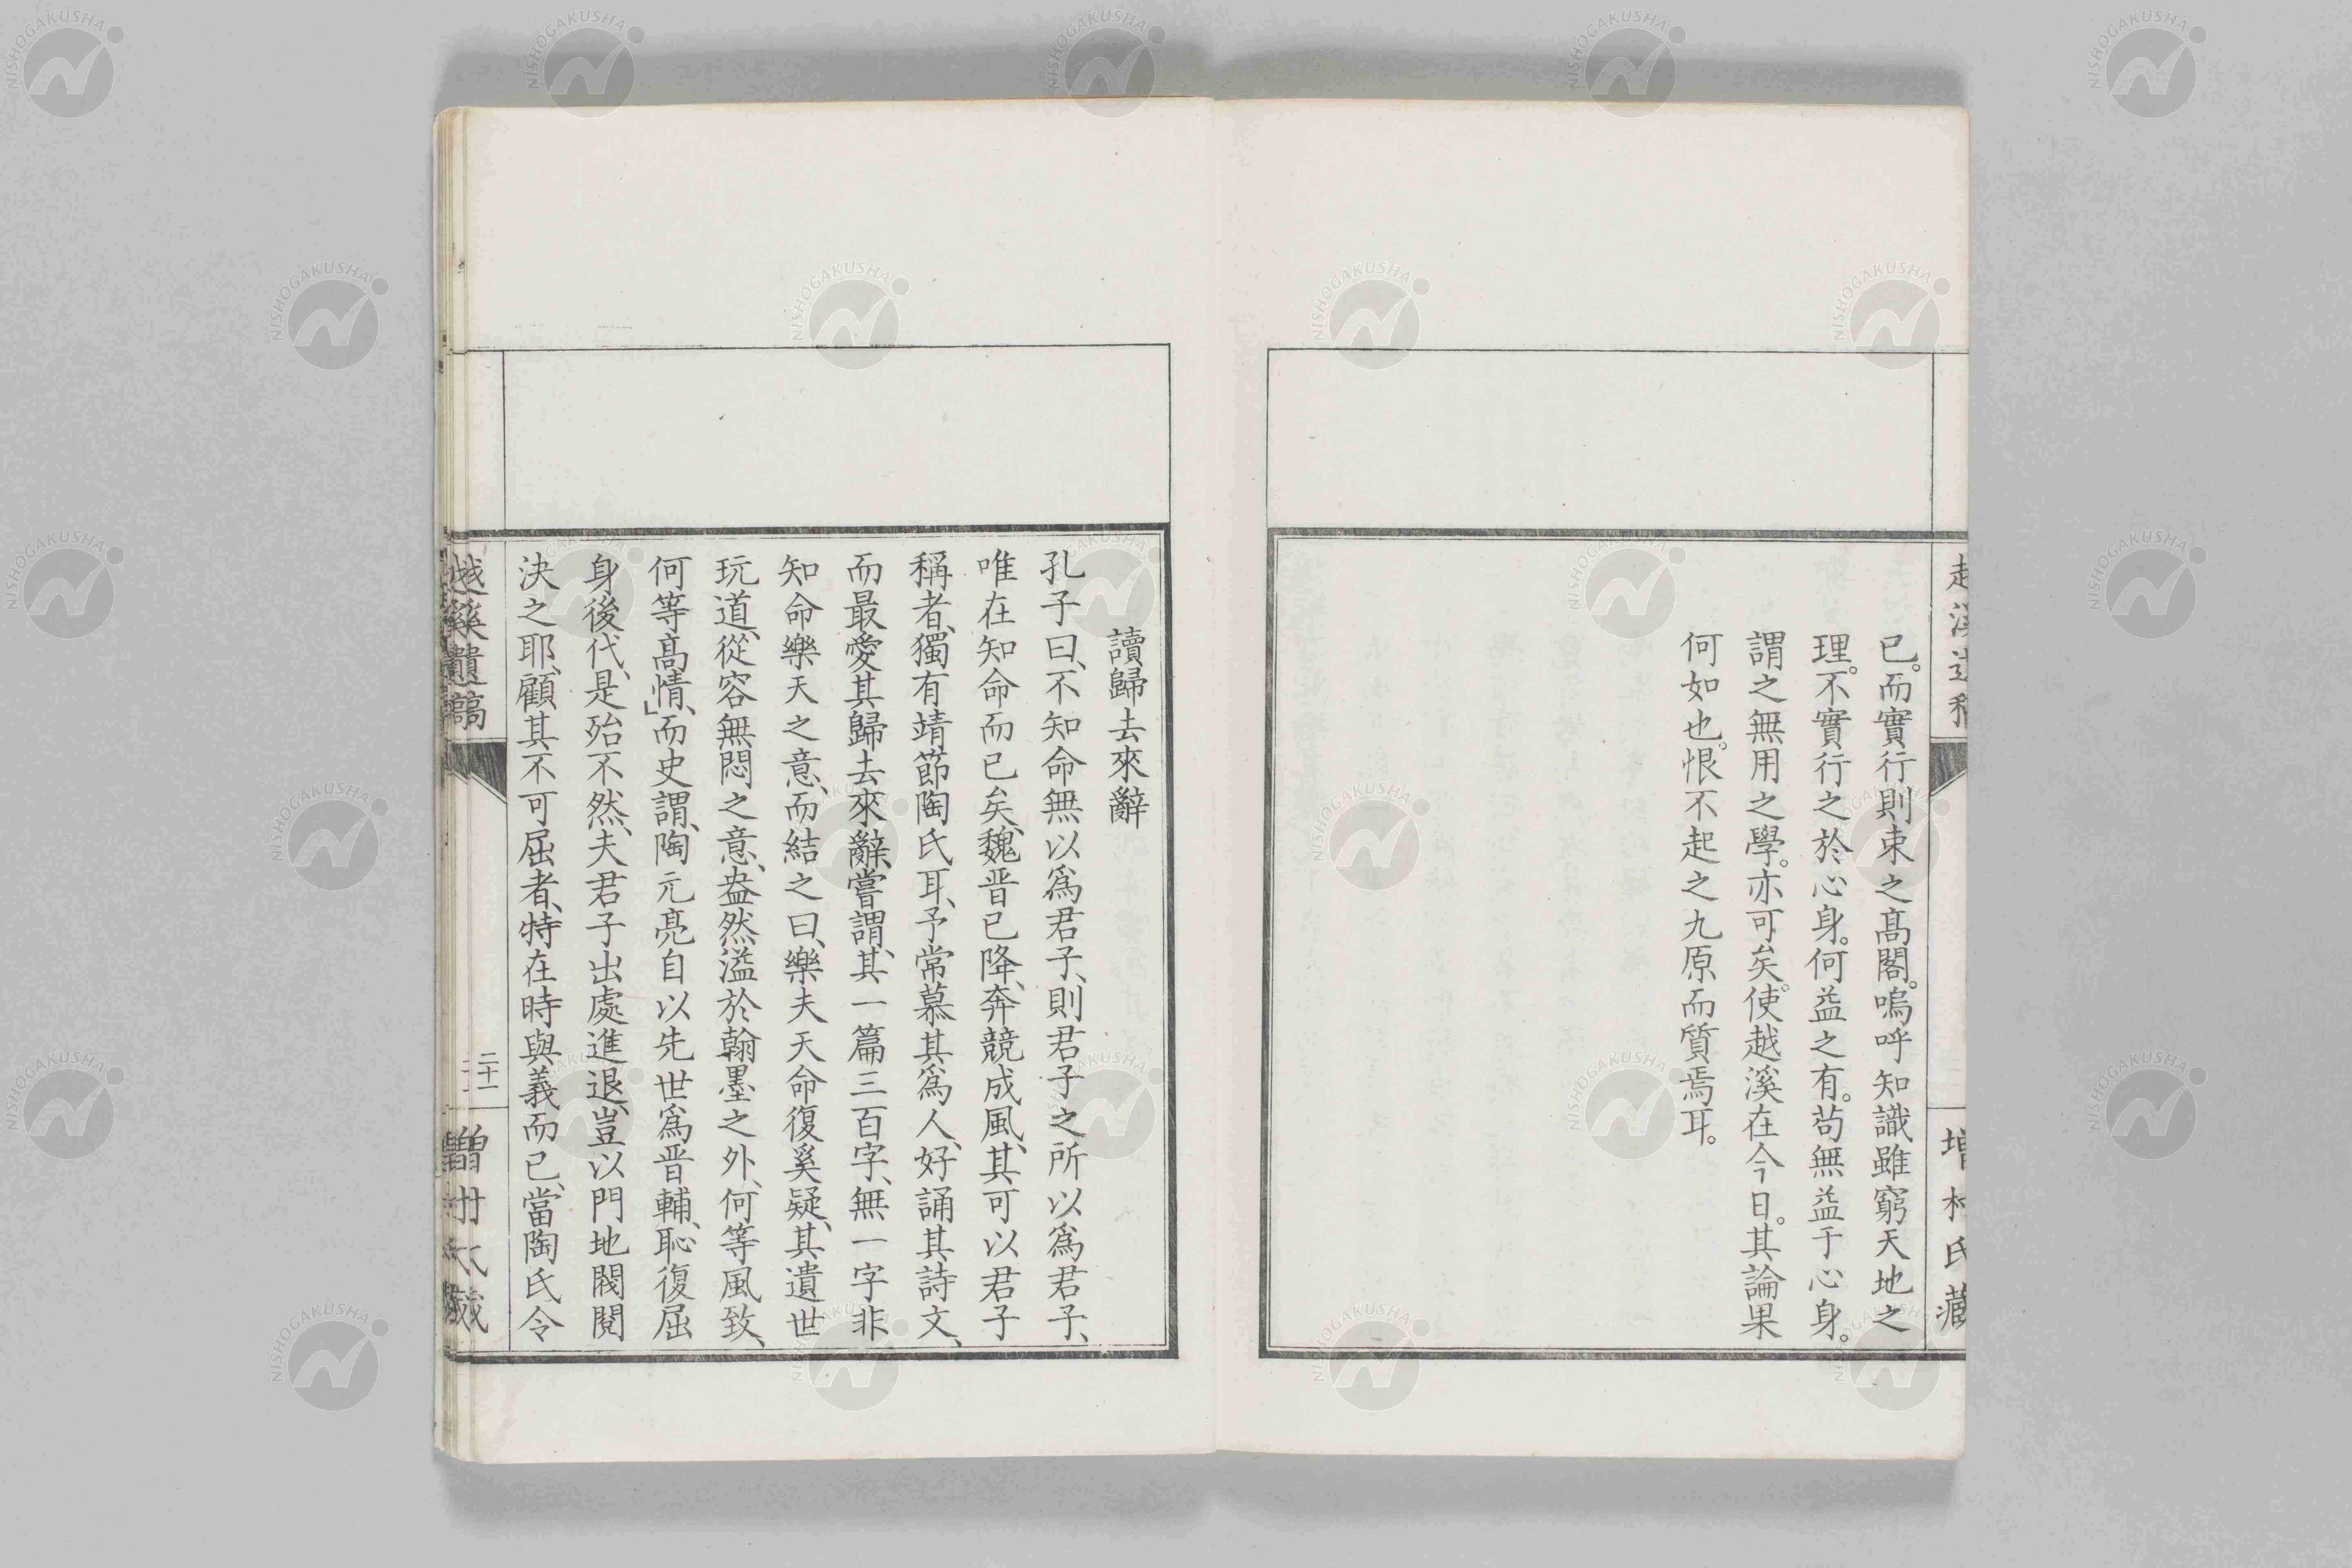 已。而實行則束之高閣。嗚呼知識雖窮天地之
理。不實行之於心身。何益之有。苟無益于心身。
謂之無用之學。亦可矣。使越溪在今日。其論果
何如也。恨不起之九原而質焉耳。
讀歸去來辭
孔子曰、不知命無以爲君子、則君子之所以爲君子、
唯在知命而已矣、魏晉已降、奔競成風、其可以君子
稱者、獨有靖節陶氏耳、予常慕其爲人、好誦其詩文、
而最愛其歸去來辭、嘗謂、其一篇三百字、無一字非
知命樂天之意、而結之曰、樂夫天命復奚疑、其遺世
玩道、從容無悶之意、盎然溢於翰墨之外、何等風致、
何等高情、」而史謂、陶元亮自以先世爲晉輔、恥復屈
身後代、是殆不然、夫君子出處進退、豈以門地閥閱
決之耶、顧其不可屈者、特在時與義而已、當陶氏令
越溪遺稿
二十一
NISHOGAKUSHA